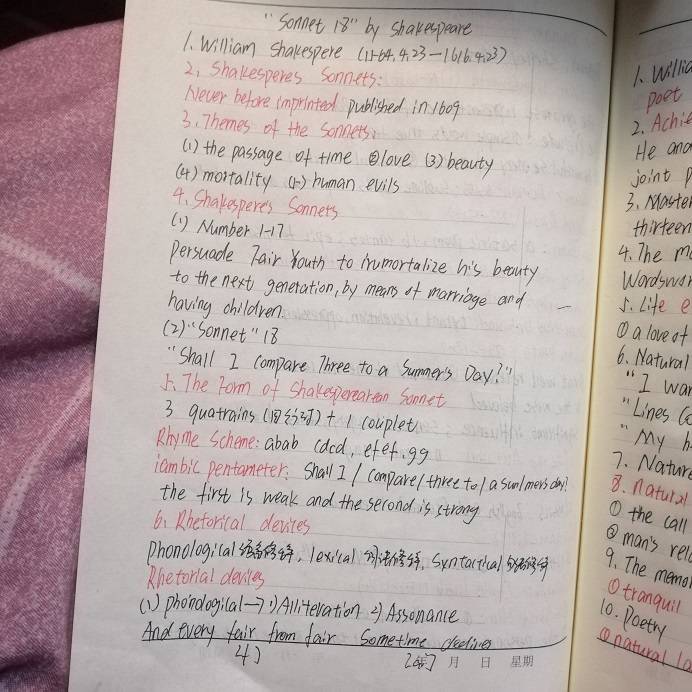 "Sonnet 18" by Shakespeare
1. William Shakespere (1564.4.23—1616.4.23)
2, Shakesperes Sonnets:
Never before imprinted published in 1609
3. Themes of the Sonnets:
(1) the passage of time ②love (3) beauty
(4) mortality (5) human evils
4. Shakesperes Sonnets
(1) Number 1-17
Persuade Fair Youth to immortalize his beauty
to the next generation, by means of marriage and
having children.
(2) "Sonnet" 18
"Shall I compare Three to a Summer's Day?"
5. The Form of Shakesperearean Sonnet
3 quatrains (四行诗) + 1 couplet
Rhyme Scheme: abab cdcd, efef. gg
iambic pentameter: Shall I / compare/ three to/ a sum/mers day?
the first is weak and the second is strong
6. Rhetorical devices
Phonological 语音修辞, lexical 词法修辞, Syntactical 句法修辞
Rhetorial devices
(1) phonological → 1) Alliteration 2) Assonance
And every fair from fair Sometime declines
4)
年 月 日 星期
1. Willia
poet
2. Achie
He and
joint p
3. Master
thirteen
4. The m
Wordswor
5. Life e
① a love of
6. Natural
"I war
"Lines Co
"My h
7. Nature
8. natural
① the call
② man's rela
9. The memo
① tranquil
10. Poetry
① natural la